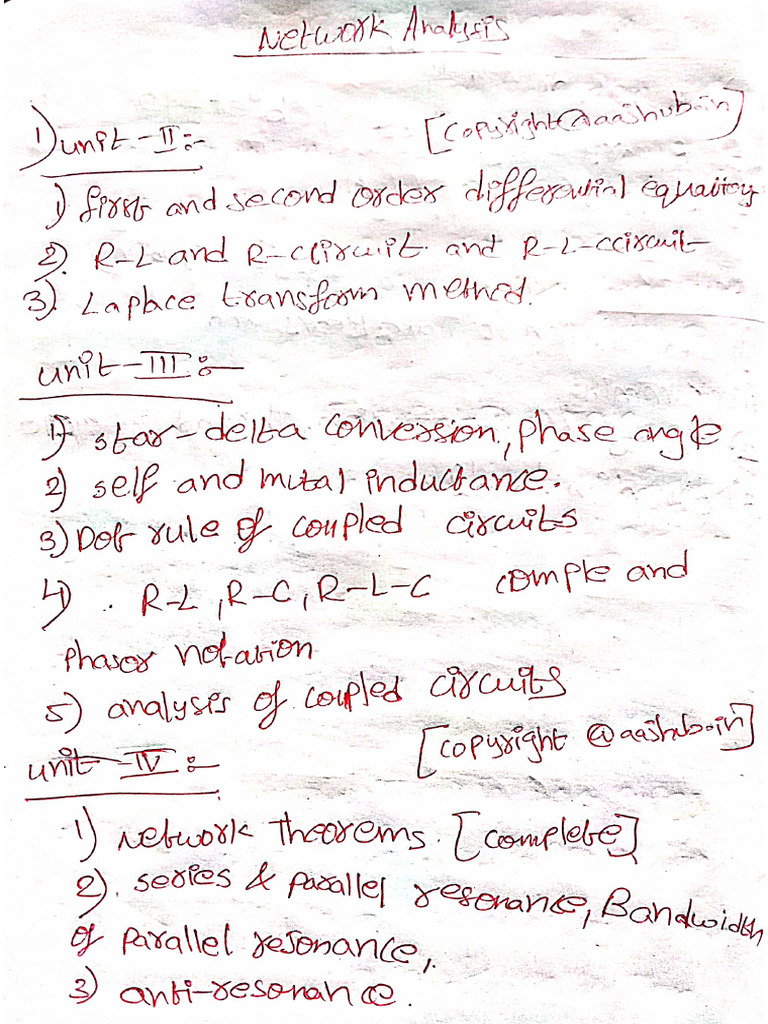 Network Analysis
[copyright@aashub.in]
1) unit-II:-
1) first and second order differential equation
2). R-L and R-C circuit and R-L-C circuit
3). Laplace transform method.
unit-III:-
1) star-delta conversion, phase angle
2) self and mutal inductance.
3) Dot rule of coupled circuits
4) . R-L, R-C, R-L-C comple and
phasor notation
5) analysis of coupled circuits
[copyright @aashub.in]
unit-IV:-
1) Network Theorems. [complete]
2). series & parallel resonance, Bandwidth
of parallel resonance,.
3) anti-resonance.